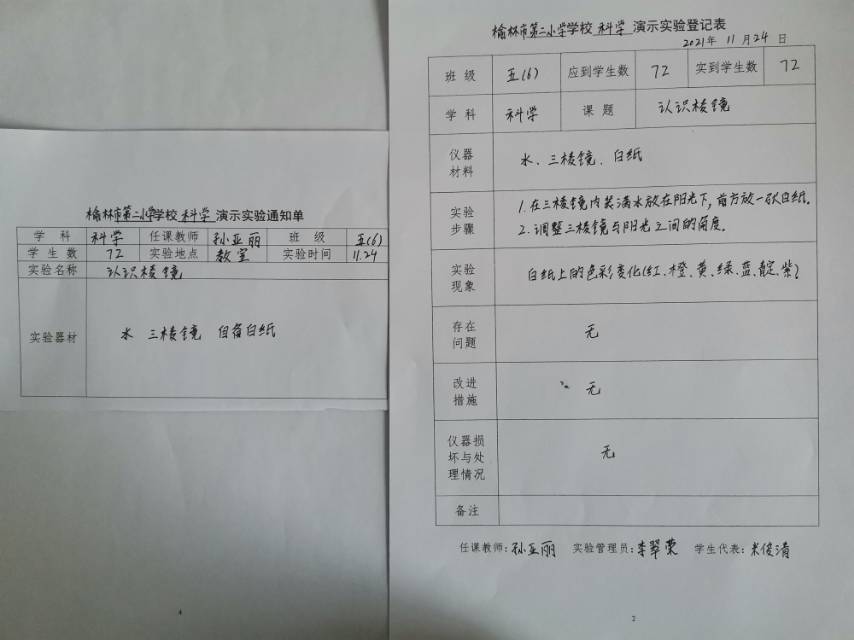 榆林市第二小学学校 科学 演示实验通知单
学 科 科学 任课教师 孙亚丽 班 级 五(6)
学 生 数 72 实验地点 教室 实验时间 11.24
实验名称 认识棱镜
实验器材 水 三棱镜 自备白纸
4
榆林市第二小学学校 科学 演示实验登记表
2021年 11月24日
班 级 五(6) 应到学生数 72 实到学生数 72
学 科 科学 课 题 认识棱镜
仪器
材料
水、三棱镜、白纸
实验
步骤
1.在三棱镜内装满水放在阳光下,前方放一张白纸。
2.调整三棱镜与阳光之间的角度。
实验
现象
白纸上的色彩变化(红、橙、黄、绿、蓝、靛、紫)
存在
问题
无
改进
措施
无
仪器损
坏与处
理情况
无
备注
任课教师:孙亚丽 实验管理员:李翠荣 学生代表:米俊清
2